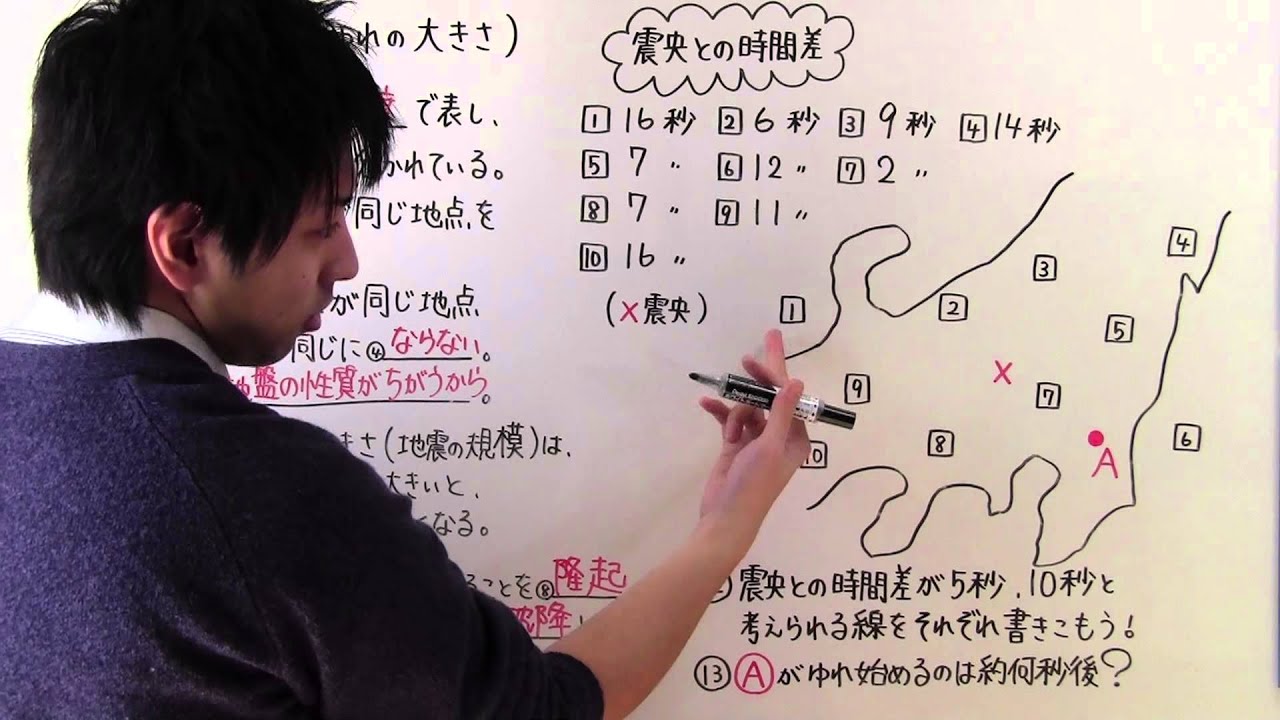 れの大きさ)
で表し、
かれている。
同じ地点を
が同じ地点
同じに④ならない。
地盤の性質がちがうから。
きさ(地震の規模)は、
大きいと、
なる。
ことを⑧隆起
沈降
震央との時間差
1 16秒 2 6秒 3 9秒 4 14秒
5 7 〃 6 12 〃 7 2 〃
8 7 〃 9 11 〃
10 16 〃
(×震央)
4
3
1 2 5
×
9 7
10 8 A 6
震央との時間差が5秒、10秒と
考えられる線をそれぞれ書きこもう!
⑬Ⓐがゆれ始めるのは約何秒後?